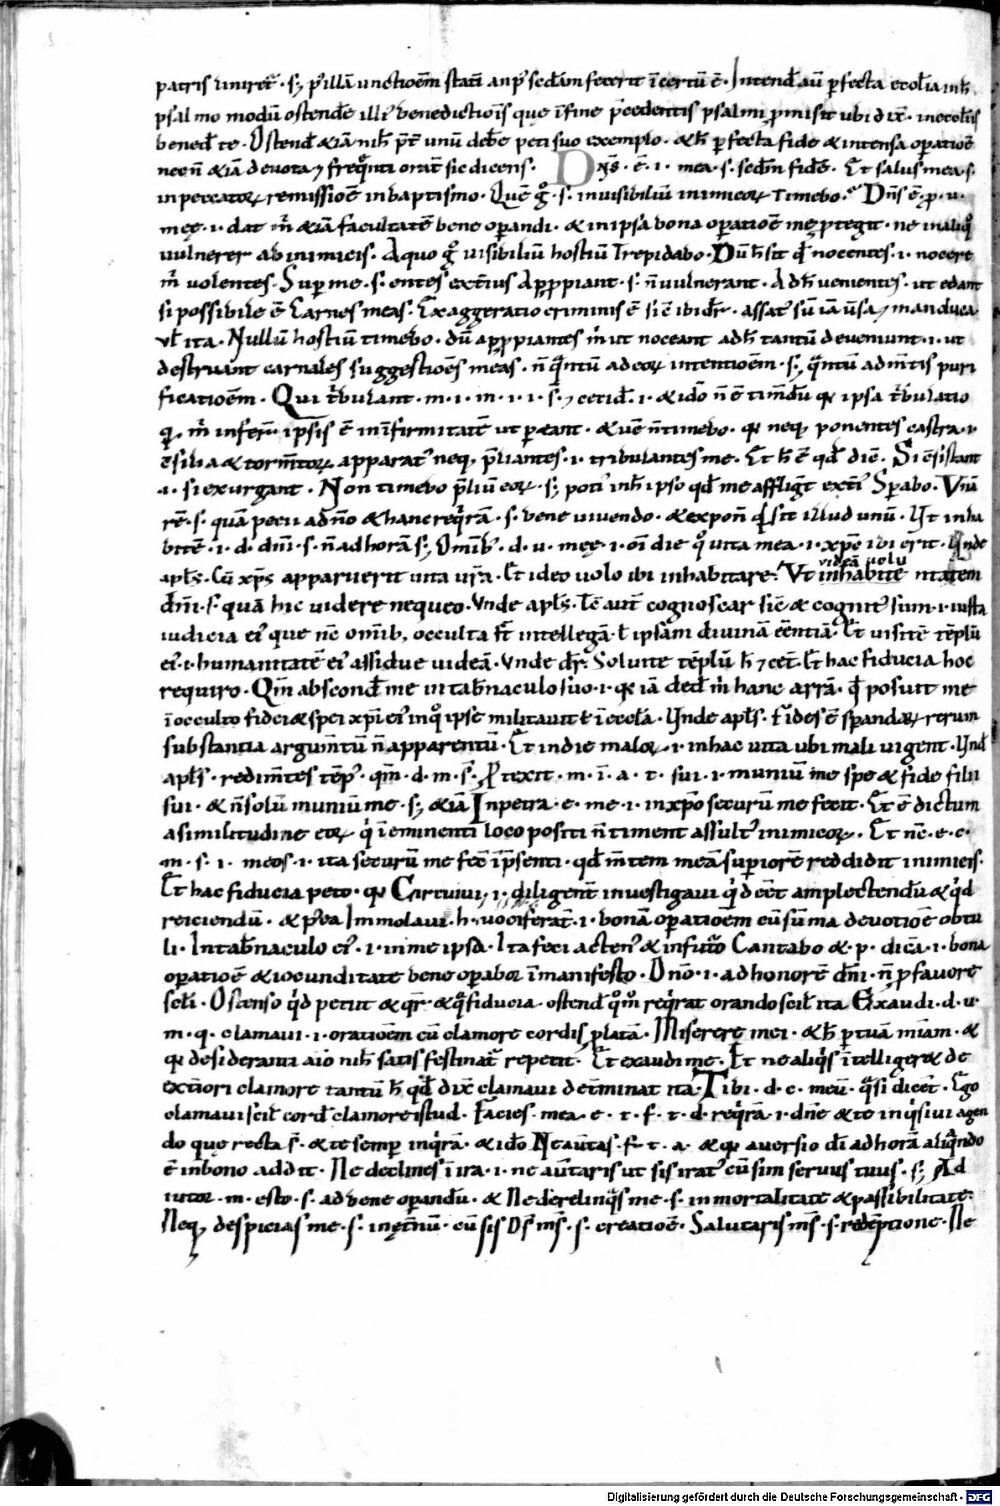 patris uniret᷑ · sꝫ p᷑ illā unctioēm statī an p᷑ sedām fecerit īcertū ē · Intend̄ aū ꝑfecta eccl̄ia in h̄
psalmo modū ostendēe illi᷑ benedictiōis que ī fine p̄cedentis psalmi p̱misit ubi dix̄ · in eccl̄iis
bened̄ te · Ostend̄ &iā nih̄ p̄t̄ unū deb̄e peti suo exemplo · & h̄ ꝑfecta fide & intensa oꝑatioē
necn̄ & iā deuota ⁊ freq̄nti orat̄ sic dicens · Dn̄s · ē · i · mea · s · sedm̄ fidē · Et salus mea · s ·
in peccatoꝝ remissioē in baptismo · Quē g̊ · s · inuisibiliū inimicoꝝ Timebo · Dn̄s ē · p · u ·
męę · i · dat m̄ & iā facultatē bene oꝑandi · & in ipsa bona oꝑatioē me ꝓtegit · ne in aliq̊
uulnerer ab inimicis · A quo g̊ uisibiliū hostiū Trepidabo · Dū h̄ sit q̄ nocentes · i · nocere
m̄ uolentes · Suꝑ me · s · entes ext̄ius Apꝓpiant · s · n̄ uulnerant · Ad h̄ uenientes · ut edant
si possibile ē Carnes meas · Exaggeratio criminis ē sic̄ ibi dr̄ · assat᷑ sū iā uersa ⁊ manduca
ul̄ ita · Nullū hostiū timebo · dū apꝓpiantes m̄ ut noceant ad h̄ tantū deueniunt · i · ut
destruant carnales suggestioēs meas · n̄ q̄ntū ad eoꝝ intentioēm · sꝫ q̄ntū ad mētis puri
ficatioēm · Qui tr̄bulant · m · i · m · i · i · s · ⁊ cecid̄ · i · & id̄o n̄ ē timēdū qꝛ ipsa tr̄bulatio
q̨ · m̄ infer̄t · ipsis ē in īfirmitatē ut ꝑeant · & uē n̄ timebo · qꝛ neqꝫ ponentes castra · i ·
ēsilia & tormēnꝝ apparat᷑ neqꝫ p̄liantes · i · tribulantes me · Et h̄ ē qd̄ dic̄ · Si ēsistant
· i · si exurgant · Non timebo p̄liū eoꝝ · sꝫ poti᷑ in h̄ ipso qd̄ me affligūt ext̄i᷑ Sꝑabo · Vnā
rē · s · quā pecii a dn̄o & hanc req̄rā · s · bene uiuendo · & expoñ q̄ sit illud unū · Ut inha
bitē · i · d · dn̄i · s · n̄ ad horā sꝫ Omībꝫ · d · u · męę · i · oī die q̊ uita mea · i · xp̄c ibi erit · Unde
apl̄s · Cū xp̄s apparuerit uita ur̄a · Et ideo uolo ibi inhabitare · Ut inhabitē uideā uolu ntatem
dn̄i · s · quā hic uidere nequeo · Vnde apl̄s · Tē aut̄ cognoscar sic̄ & cognit᷑ sum · i · iusta
iudicia ei᷑ que nc̄ omībꝫ occulta st̄ intellegā · l̄ ipsām diuinā eēntiā · Et uisitē tēplū
ei᷑ · i · humanitatē ei᷑ assidue uideā · Vnde dr̄ · Soluite tēplū h̄ ⁊ cet̄ · Et hac fiducia hoc
requiro · Qm̄ abscond̄ me in tab̄naculo suo · i · qꝛ iā ded̄ m̄ hanc arrā · q̄ posuit me
ī occulto fidei & spei xp̄i ei᷑ in q̊ ipse militauit · l̄ ī eccl̄a · Unde apl̄s · Fides ē sꝑandaꝝ rerum
substantia argumētū n̄ apparentū · Et in die maloꝝ · i · in hac uita ubi mali uigent · Und̄
apl̄s · redimētes tēp᷑ · qm̄ · d · m · s̄ · Ꝓtexit · m · ī · a · t · sui · i · muniuit me spe & fide filii
sui · & n̄ solū muniuit me · sꝫ & iā In petra · e · me · i · in xp̄o securū me fecit · Et ē dictum
a similitudine eoꝝ q̄ ī eminenti loco positi n̄ timent assult᷑ inimicoꝝ · Et nc̄ · e · c ·
m · s · i · meos · i · ita securū me fec̄ ī p̄senti · qd̄ mētem meā superiorē reddidit inimicis ·
Et hac fiducia peto · qꝛ Circuiui · i · diligent̄ inuestigaui q̄d eēt amplectendū & q̄d
reiciendū · & p̄ea Immolaui · h · uociferat̄ · i · bonā oꝑatioēm cū sūma deuotioē obtu
li · In tab̄naculo ei᷑ · i · in me ipso · Ita feci acten᷑ & in futuro Cantabo & · p · dicā · i · bona
oꝑatioē & iocunditate bene oꝑabor ī manifesto · Dn̄o · i · ad honorē dn̄i · n̄ ꝓ fauore
sc̄li · Ostenso q̄d petit & qr̄ · & q̄ fiducia · ostend̄ q̊m̊ req̄rat orando scil̄ ita Exaudi · d · u ·
m · q · clamaui · i · oratioēm cū clamore cordis ꝓlatā · Miserere mei · & h̄ ꝑ tuā mīam · &
qꝛ desideranti aīo nih̄ satis festinat᷑ repetit · Et exaudi me · Et ne aliq̄s ītelliger& de
ext̄iori clamore tantū h̄ qd̄ dixit clamaui det̄minat ita · Tibi · d · c · meū · q̄si dicet̄ · Ego
clamaui scil̄ cord̄ clamore istud · Facies · mea · e · t · f · t · d · req̄rā · i · dn̄e & te inq̄siui agen
do que recta s̄t · & te semper inq̄rā · & id̄o Ne au̅tas · f · t · a · & qꝛ auersio dī ad horā aliq̄ndo
ē in bono addit · Ne declines ī ira · i · ne au̅taris ut sis irat᷑ cū sim seruus tuus · sꝫ Ad
iutor · m · esto · s · ad bene oꝑandū · & Ne derelinq̄s me · s · in mortalitate & passibilitate ·
Neqꝫ despicias me · s · in ęt̄nū · cū sis Ds̄ ms̄ · s · creatioē · Salutaris ms̄ · s · redēptione · Ne
Digitalisierung gefördert durch die Deutsche Forschungsgemeinschaft - DFG